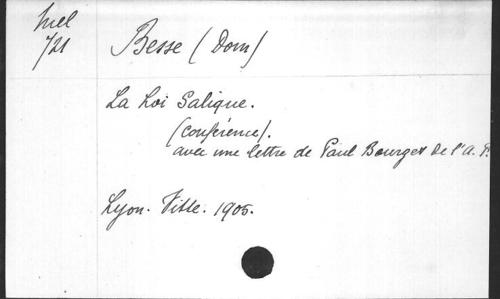 Mel
721
Besse (Dom)
La Loi Salique.
(conférence).
avec une lettre de Paul Bourget de l'A. F.
Lyon. Vitte. 1905.